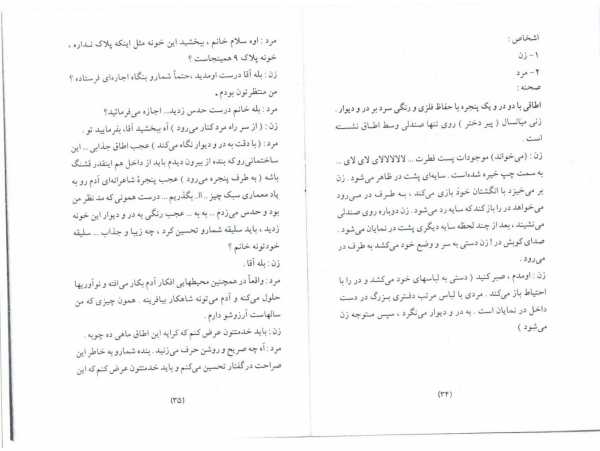 اشخاص :
۱- زن
۲- مرد
صحنه :
اطاقی با دو در و یک پنجره با حفاظ فلزی و رنگی سرد بر در و دیوار .
زنی میانسال ( پیر دختر ) روی تنها صندلی وسط اطاق نشسته
است .
زن : (می‌خواند) موجودات پست فطرت .. لالالالای لای لای ..
به سمت چپ خیره شده‌است . سایه‌ای پشت در ظاهر می‌شود . زن
بر می‌خیزد با انگشتان خود بازی می‌کند ، به طرف در می‌رود
می‌خواهد در را باز کند که سایه رد می‌شود. زن دوباره روی صندلی
می‌نشیند ، بعد از چند لحظه سایه دیگری پشت در نمایان می‌شود .
صدای کوبش در ! زن دستی به سر و وضع خود می‌کشد به طرف در
می‌رود .
زن : اومدم ، صبر کنید ( دستی به لباسهای خود می‌کشد و در را با
احتیاط باز می‌کند . مردی با لباس مرتب دفتری بزرگ در دست
داخل در نمایان است . به در و دیوار می‌نگرد ، سپس متوجه زن
می‌شود )
(۳۴)
مرد : اوه سلام خانم ، ببخشید این خونه مثل اینکه پلاک نداره ،
خونه پلاک ۹ همینجاست ؟
زن : بله آقا درست اومدید ،حتماً شمارو بنگاه اجاره‌ای فرستاده ؟
من منتظرتون بودم .
مرد : بله خانم درست حدس زدید... اجازه می‌فرمائید؟
زن: : ( از سر راه مرد کنار می‌رود ) آه ببخشید آقا، بفرمایید تو .
مرد : ( با دقت به در و دیوار نگاه می‌کند ) عجب اطاق جذابی ... این
ساختمانی‌رو که بنده از بیرون دیدم باید از داخل هم اینقدر قشنگ
باشه ( به طرف پنجره می‌رود ) عجب پنجرهٔ شاعرانه‌ای آدم رو به
یاد معماری سبک چیز .. اا. بگذریم... درست همونی که مد نظر من
بود و حدس می‌زدم .. به به .. عجب رنگی به در و دیوار این خونه
زدید ، باید سلیقه شمارو تحسین کرد ، چه زیبا و جذاب ... سلیقه
خودتونه خانم ؟
زن : بله آقا .
مرد : واقعاً در همچنین محیطهایی افکار آدم بکار می‌افته و نوآوریها
حلول می‌کنه و آدم می‌تونه شاهکار بیافرینه . همون چیزی که من
سالهاست آرزوشو دارم .
زن : باید خدمتتون عرض کنم که کرایه این اطاق ماهی ده چوبه .
مرد : آه چه صریح و روشن حرف می‌زنید . بنده شمارو به خاطر این
صراحت در گفتار تحسین می‌کنم و باید خدمتتون عرض کنم که این
(۳۵)